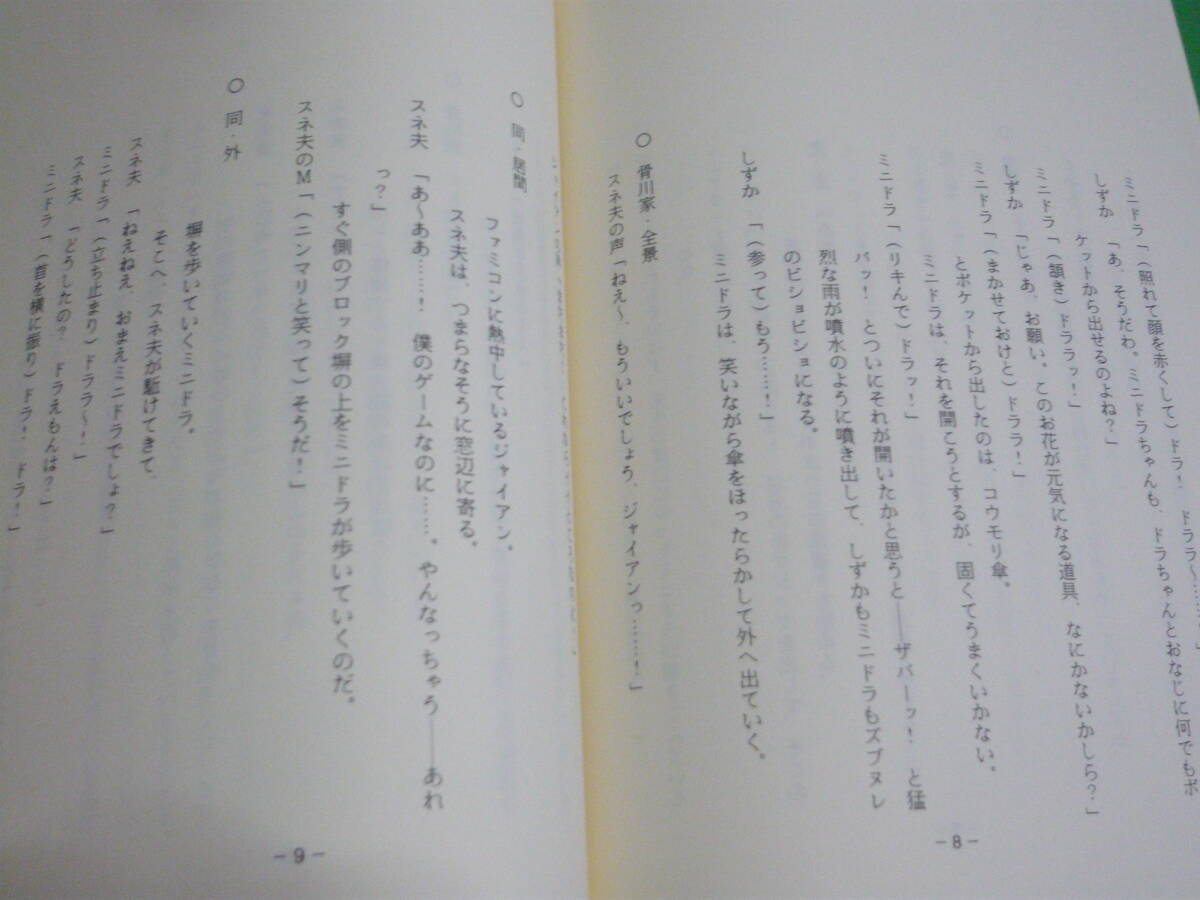 ミニドラ「(照れて顔を赤くして)ドラ! ドララ〜……」
しずか 「あ、そうだわ。ミニドラちゃんも、ドラちゃんとおなじに何でもポ
ケットから出せるのよね?」
ミニドラ「(頷き)ドララッ!」
しずか 「じゃあ、お願い。このお花が元気になる道具、なにかないかしら?」
ミニドラ「(まかせておけと)ドララ!」
とポケットから出したのは、コウモリ傘。
ミニドラは、それを開こうとするが、固くてうまくいかない。
ミニドラ「(リキんで)ドラッ!」
バッ! とついにそれが開いたかと思うと――ザバーッ! と猛
烈な雨が噴水のように噴き出して、しずかもミニドラもズブヌレ
のビショビショになる。
しずか 「(参って)もう……!」
ミニドラは、笑いながら傘をほったらかして外へ出ていく。
○ 骨川家・全景
スネ夫の声「ねえ〜、もういいでしょう、ジャイアンっ……!」
-8-
○ 同・居間
ファミコンに熱中しているジャイアン。
スネ夫は、つまらなそうに窓辺に寄る。
スネ夫 「あ〜ああ……! 僕のゲームなのに……。やんなっちゃう――あれ
っ?」
すぐ側のブロック塀の上をミニドラが歩いていくのだ。
スネ夫のM「(ニンマリと笑って)そうだ!」
○ 同・外
塀を歩いていくミニドラ。
そこへ、スネ夫が駈けてきて、
スネ夫 「ねえねえ、おまえミニドラでしょ?」
ミニドラ「(立ち止まり)ドララ〜!」
スネ夫 「どうしたの? ドラえもんは?」
ミニドラ「(首を横に振り)ドラ! ドラ!」
-9-